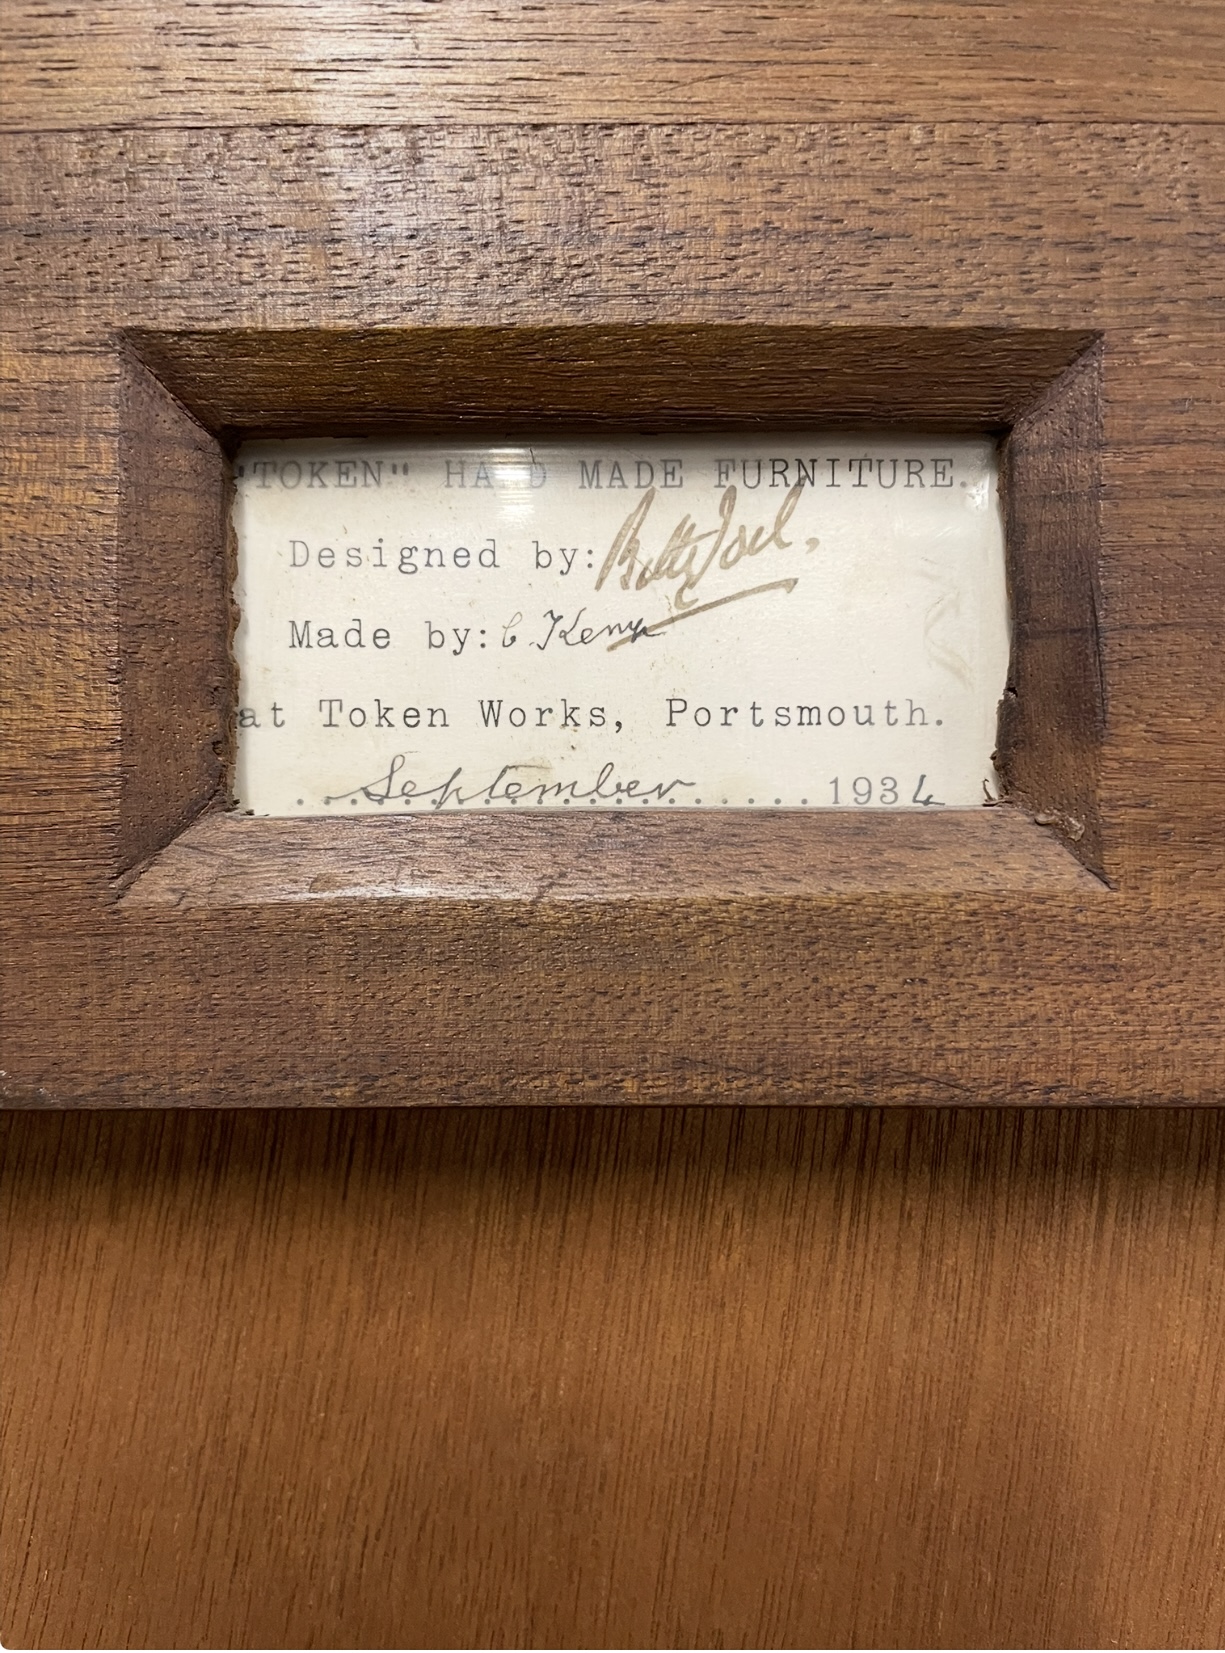 "TOKEN" HAND MADE FURNITURE.
Designed by: Betty Joel,
Made by: C Kemp
at Token Works, Portsmouth.
..September.......... 1934